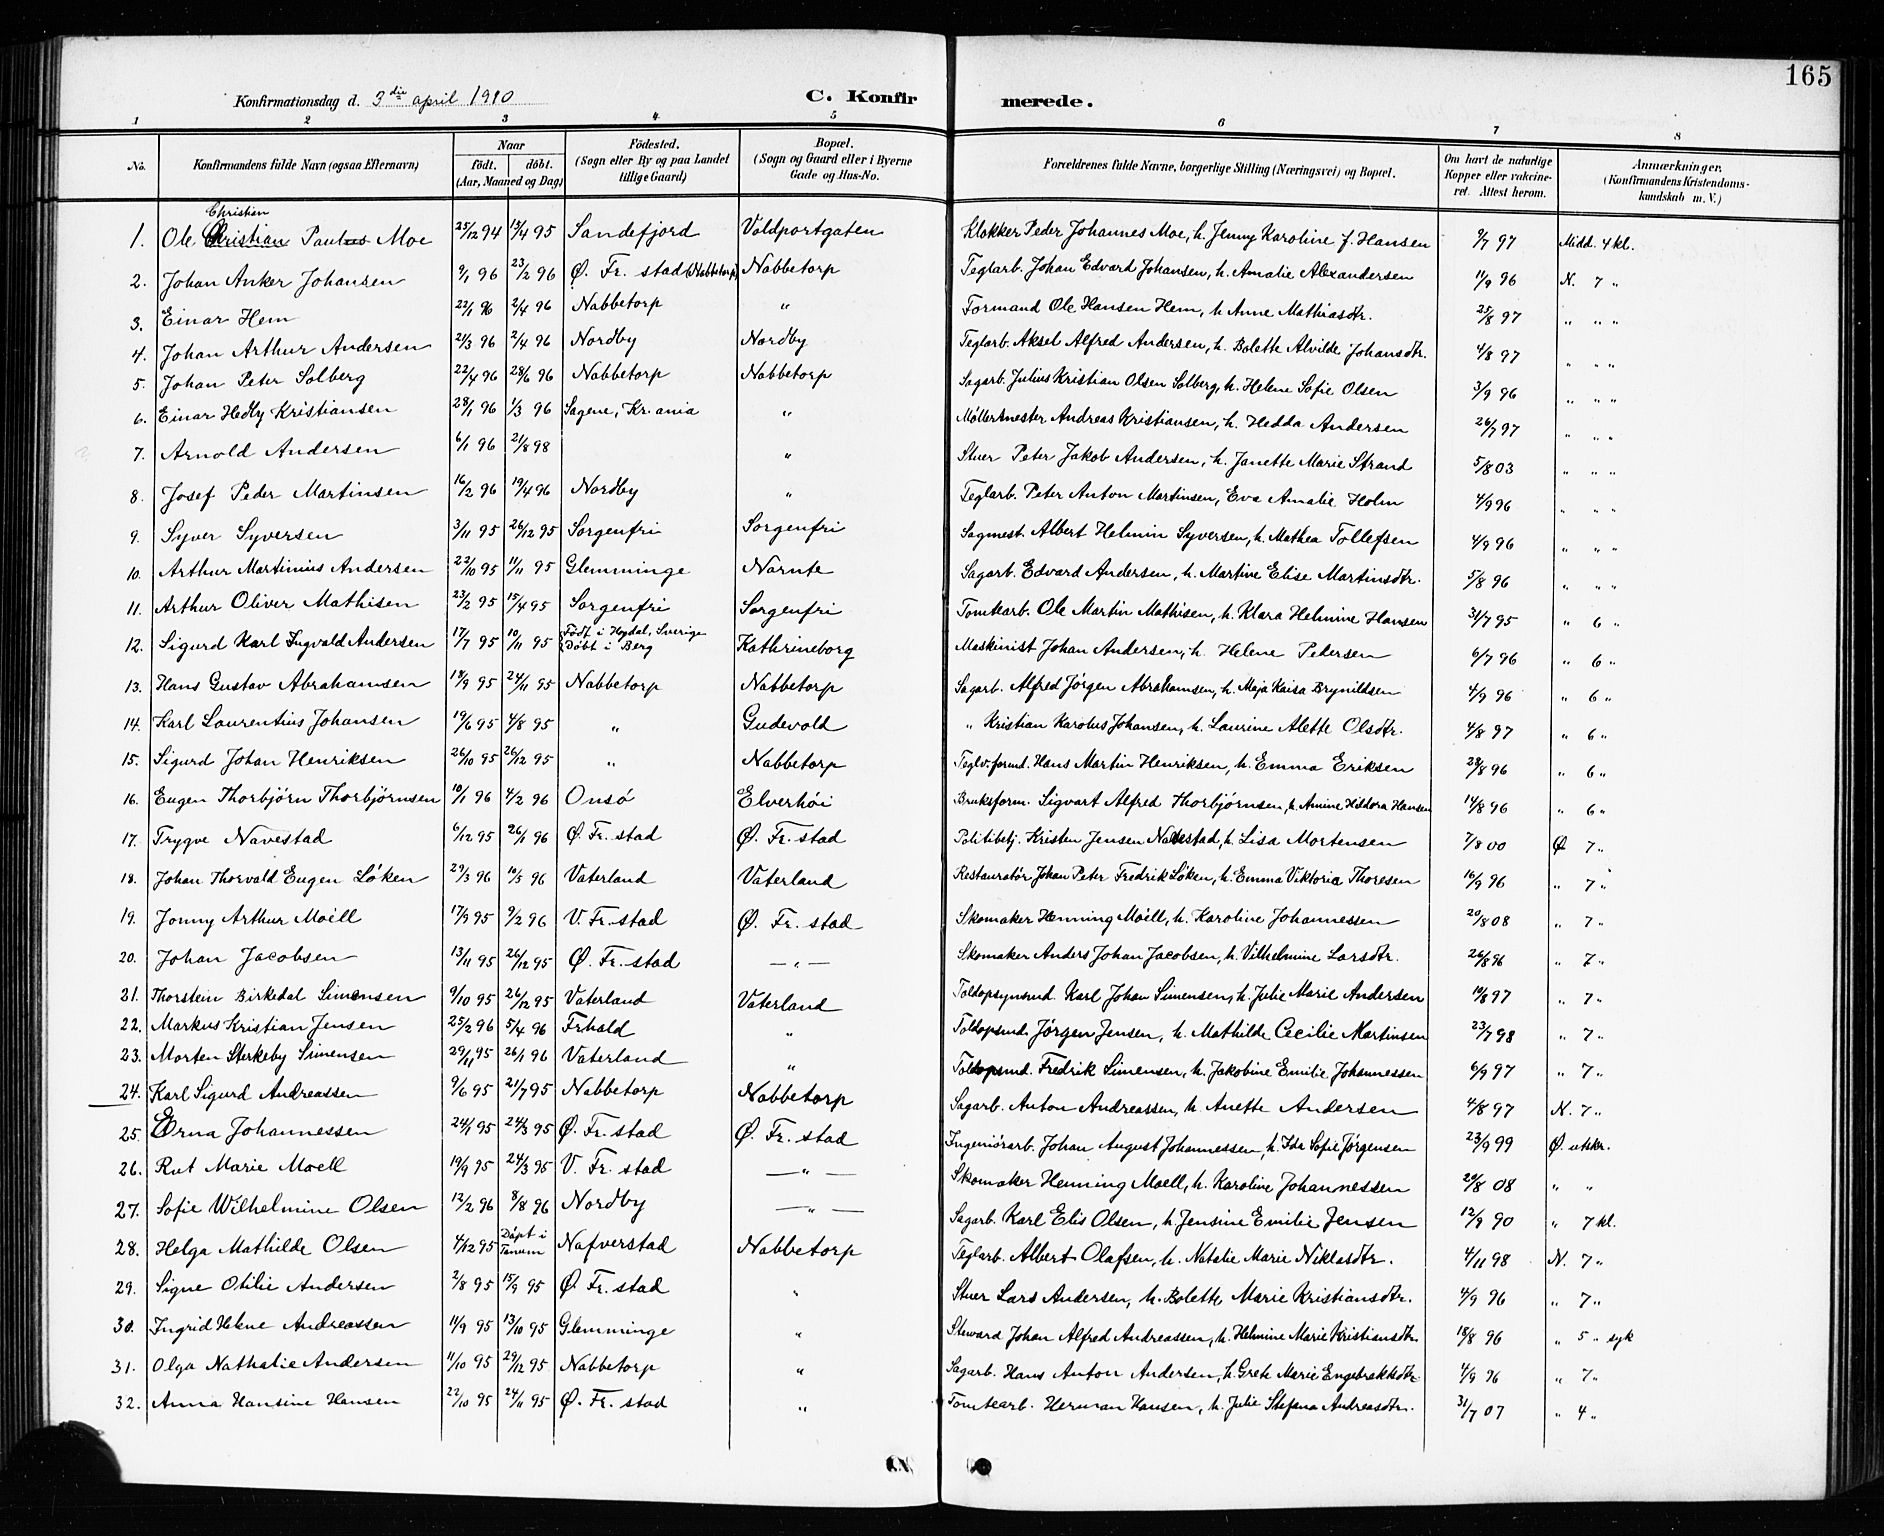 165
Konfirmationsdag d. 3die april 1910 C. Konfirmerede.
1 2 3 4 5 6 7 8
No. Konfirmandens fulde Navn (ogsaa Efternavn) Naar født. døbt. (Aar, Maaned og Dag) Fødested. (Sogn eller By og paa Landet tillige Gaard) Bopæl. (Sogn og Gaard eller i Byerne Gade og Hus-No. Forældrenes fulde Navne, borgerlige Stilling (Næringsvei) og Bopæl. Om havt de naturlige Kopper eller vakcineret. Attest herom. Anmærkninger. (Konfirmandens Kristendomskundskab m. V.)
Christian
1. Ole Christian Paulus Moe 25/12 94 15/4 95 Sandefjord Voldportgaten Klokker Peder Johannes Moe, h. Jenny Karoline f. Hansen 9/7 97 Midd. 4 kl.
2. Johan Anker Johansen 9/1 96 23/2 96 Ø. Fr. stad (Nabbetorp) Nabbetorp Teglarb. Johan Edvard Johansen, h. Amalie Alexandersen 11/9 96 N. 7 "
3. Einar Hem 22/1 96 2/4 96 Nabbetorp " Formand Ole Hansen Hem, h. Anne Mathiasdtr. 25/8 97 " " "
4. Johan Arthur Andersen 21/3 96 2/4 96 Nordby Nordby Teglarb. Aksel Alfred Andersen, h. Bolette Alvilde Johansdtr. 4/8 97 " " "
5. Johan Peter Solberg 22/4 96 28/6 96 Nabbetorp Nabbetorp Sagarb. Julius Kristian Olsen Solberg, h. Helene Sofie Olsen 3/9 96 " " "
6. Einar Hedly Kristiansen 28/1 96 1/3 96 Sagene, Kr.ania " Møllermester Andreas Kristiansen, h. Hedda Andersen 26/7 97 " " "
7. Arnold Andersen 6/1 96 21/8 98 " Stuer Peter Jakob Andersen, h. Janette Marie Strand 5/8 03 " " "
8. Josef Peder Martinsen 16/2 96 19/4 96 Nordby " Teglarb. Peter Anton Martinsen, Eva Amalie Holm 4/9 96 " " "
9. Syver Syversen 3/11 95 26/12 95 Sorgenfri Sorgenfri Sagmest. Albert Helmin Syversen, h. Mathea Tollefsen 4/9 96 " " "
10. Arthur Martinius Andersen 22/10 95 11/11 95 Glemminge Nørnte Sagarb. Edvard Andersen, h. Martine Elise Martinsdtr. 5/8 96 " " "
11. Arthur Oliver Mathisen 23/2 95 15/4 95 Sorgenfri Sorgenfri Tomtearb. Ole Martin Mathisen, h. Klara Helmine Hansen 31/7 95 " 6 "
12. Sigurd Karl Ingvald Andersen 17/7 95 10/11 95 Født i Hogdal, Sverige Døbt i Berg Kathrineborg Maskinist Johan Andersen, h. Helene Petersen 6/7 96 " 6 "
13. Hans Gustav Abrahamsen 18/9 95 24/11 95 Nabbetorp Nabbetorp Sagarb. Alfred Jørgen Abrahamsen, h. Maja Kaisa Brynildsen 4/9 96 " 6 "
14. Karl Laurentius Johansen 19/6 95 4/8 95 " Gudevold " Kristian Karolus Johansen, h. Laurine Alette Olsdtr. 4/8 97 " 6 "
15. Sigurd Johan Henriksen 26/10 95 26/12 95 " Nabbetorp Teglv.formd. Hans Martin Henriksen, h. Emma Eriksen 28/8 96 " 6 "
16. Eugen Thorbjørn Thorbjørnsen 10/1 96 4/2 96 Onsø Elverhöi Bruksform. Sigvart Alfred Thorbjørnsen, h. Amine Hildora Hansen 14/8 96 " 6 "
17. Trygve Navestad 6/12 95 26/1 96 Ø. Fr. stad Ø. Fr. stad Politibetj. Kristen Jensen Navestad, h. Lisa Mortensen 7/8 00 Ø 7 "
18. Johan Thorvald Eugen Løken 29/3 96 10/5 96 Vaterland Vaterland Restauratør Johan Peter Fredrik Løken, h. Emma Viktoria Thoresen 16/9 96 " 7 "
19. Jonny Arthur Moëll 17/9 95 9/2 96 V. Fr. stad Ø. Fr. stad Skomaker Henning Moëll, h. Karoline Johannessen 20/8 08 " 7 "
20. Johan Jacobsen 13/11 95 26/12 95 Ø. Fr. stad — " — Skomaker Anders Johan Jacobsen, h. Vilhelmine Larsdtr. 26/8 96 " 7 "
21. Thorstein Birkedal Simensen 9/10 95 26/12 95 Vaterland Vaterland Toldopsynsmd. Karl Johan Simensen, h. Julie Marie Andersen 10/8 97 " 7 "
22. Markus Kristian Jensen 25/2 96 5/4 96 Frhald " Toldopsmd. Jørgen Jensen, h. Mathilde Cecilie Martinsen 23/7 98 " 7 "
23. Morten Sterkeby Simensen 29/11 95 26/1 96 Vaterland " Toldopsmd. Fredrik Simensen, h. Jakobine Emilie Johannessen 6/9 97 " 7 "
24. Karl Sigurd Andreassen 9/6 95 21/7 95 Nabbetorp Nabbetorp Sagarb. Anton Andreassen, h. Anette Andersen 4/8 97 N. 7 "
25. Erna Johannessen 24/1 95 24/3 95 Ø. Fr. stad Ø. Fr. stad Ingeniørarb. Johan August Johannessen, h. Ida Sofie Jørgensen 23/9 99 Ø. utskr.
26. Rut Marie Moell 19/9 95 24/3 95 V. Fr. stad — " — Skomaker Henning Moell, h. Karoline Johannessen 20/8 08 " "
27. Sofie Wilhelmine Olsen 12/2 96 8/8 96 Nordby — " — Sagarb. Karl Elis Olsen, h. Jensine Emilie Jensen 12/9 90 " 7 kl.
28. Helga Mathilde Olsen 4/12 95 Døpt i Tanum Nafverstad Nabbetorp Teglarb. Albert Olafsen, h. Natalie Marie Niklasdtr. 4/11 98 N. 7 "
29. Signe Otilie Andersen 2/8 95 15/9 95 Ø. Fr. stad " Stuer Lars Andersen, h. Bolette Marie Kristiansdtr. 4/9 96 " 7 "
30. Ingrid Helene Andreassen 14/9 95 13/10 95 Glemminge " Steward Johan Alfred Andreassen, h. Helmine Marie Kristiansdtr. 18/8 96 " 5 " syk
31. Olga Nathalie Andersen 11/10 95 29/12 95 Nabbetorp " Sagarb. Hans Anton Andersen, h. Grete Marie Engebrektsdtr. 4/9 96 " 7 "
32. Anna Hansine Hansen 22/10 95 24/11 95 Ø. Fr. stad " Tomtearb. Herman Hansen, h. Julie Stefana Andreasdtr. 31/7 07 " 4 "